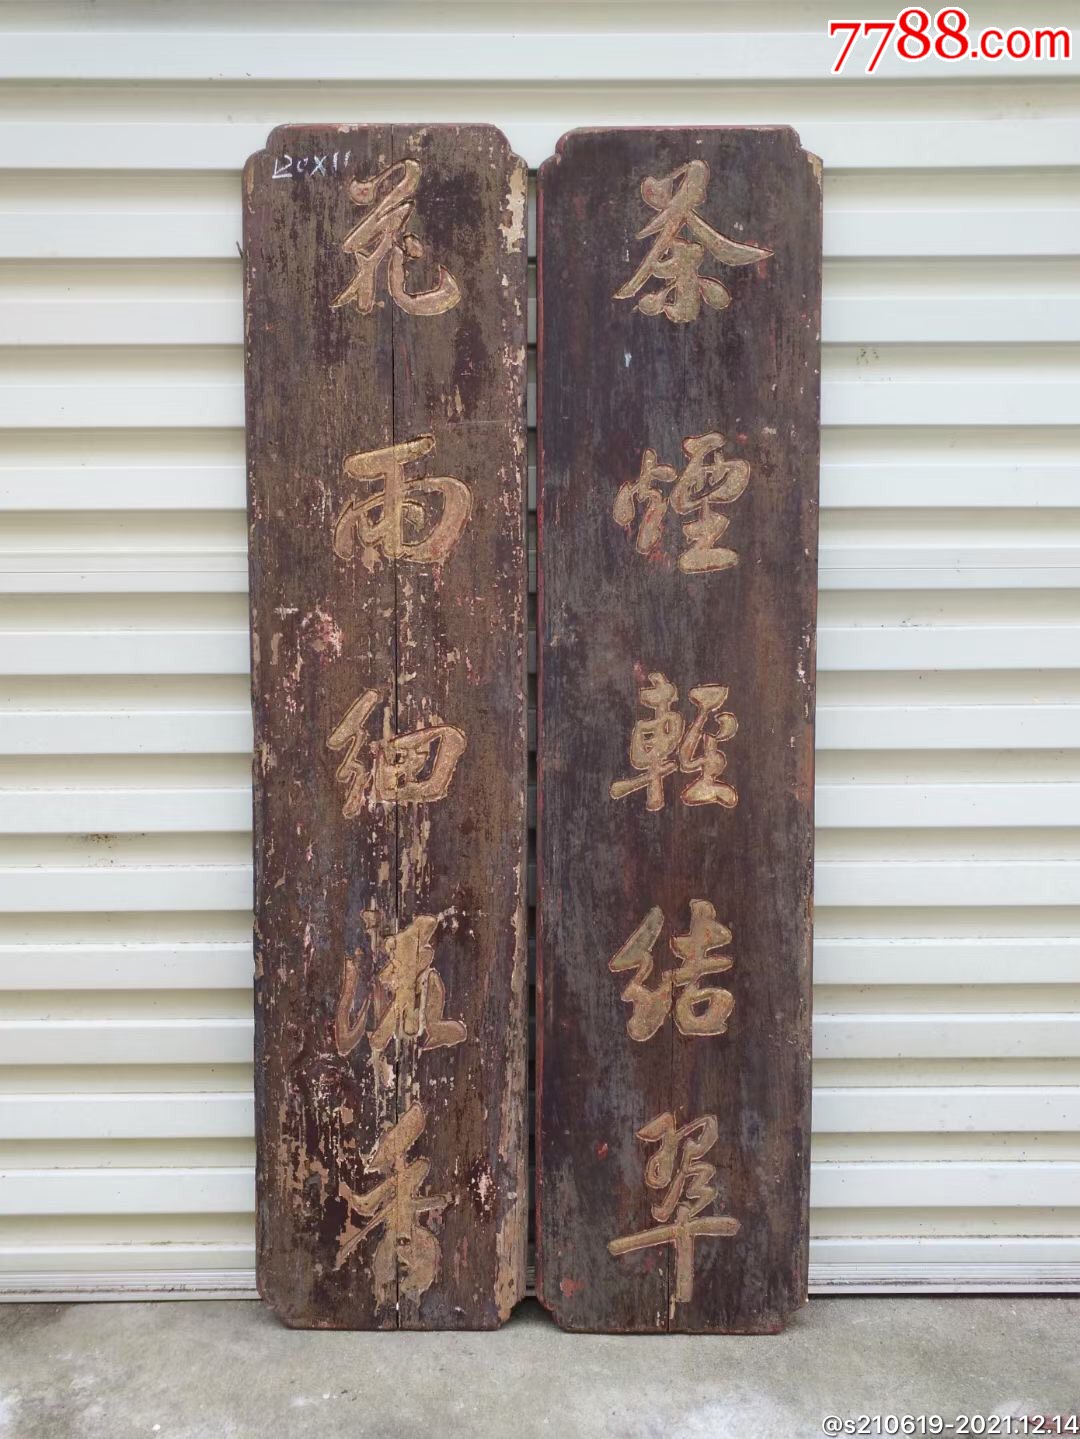 7788.com
120X11
茶煙輕結翠
花雨細流香
@s210619-2021.12.14